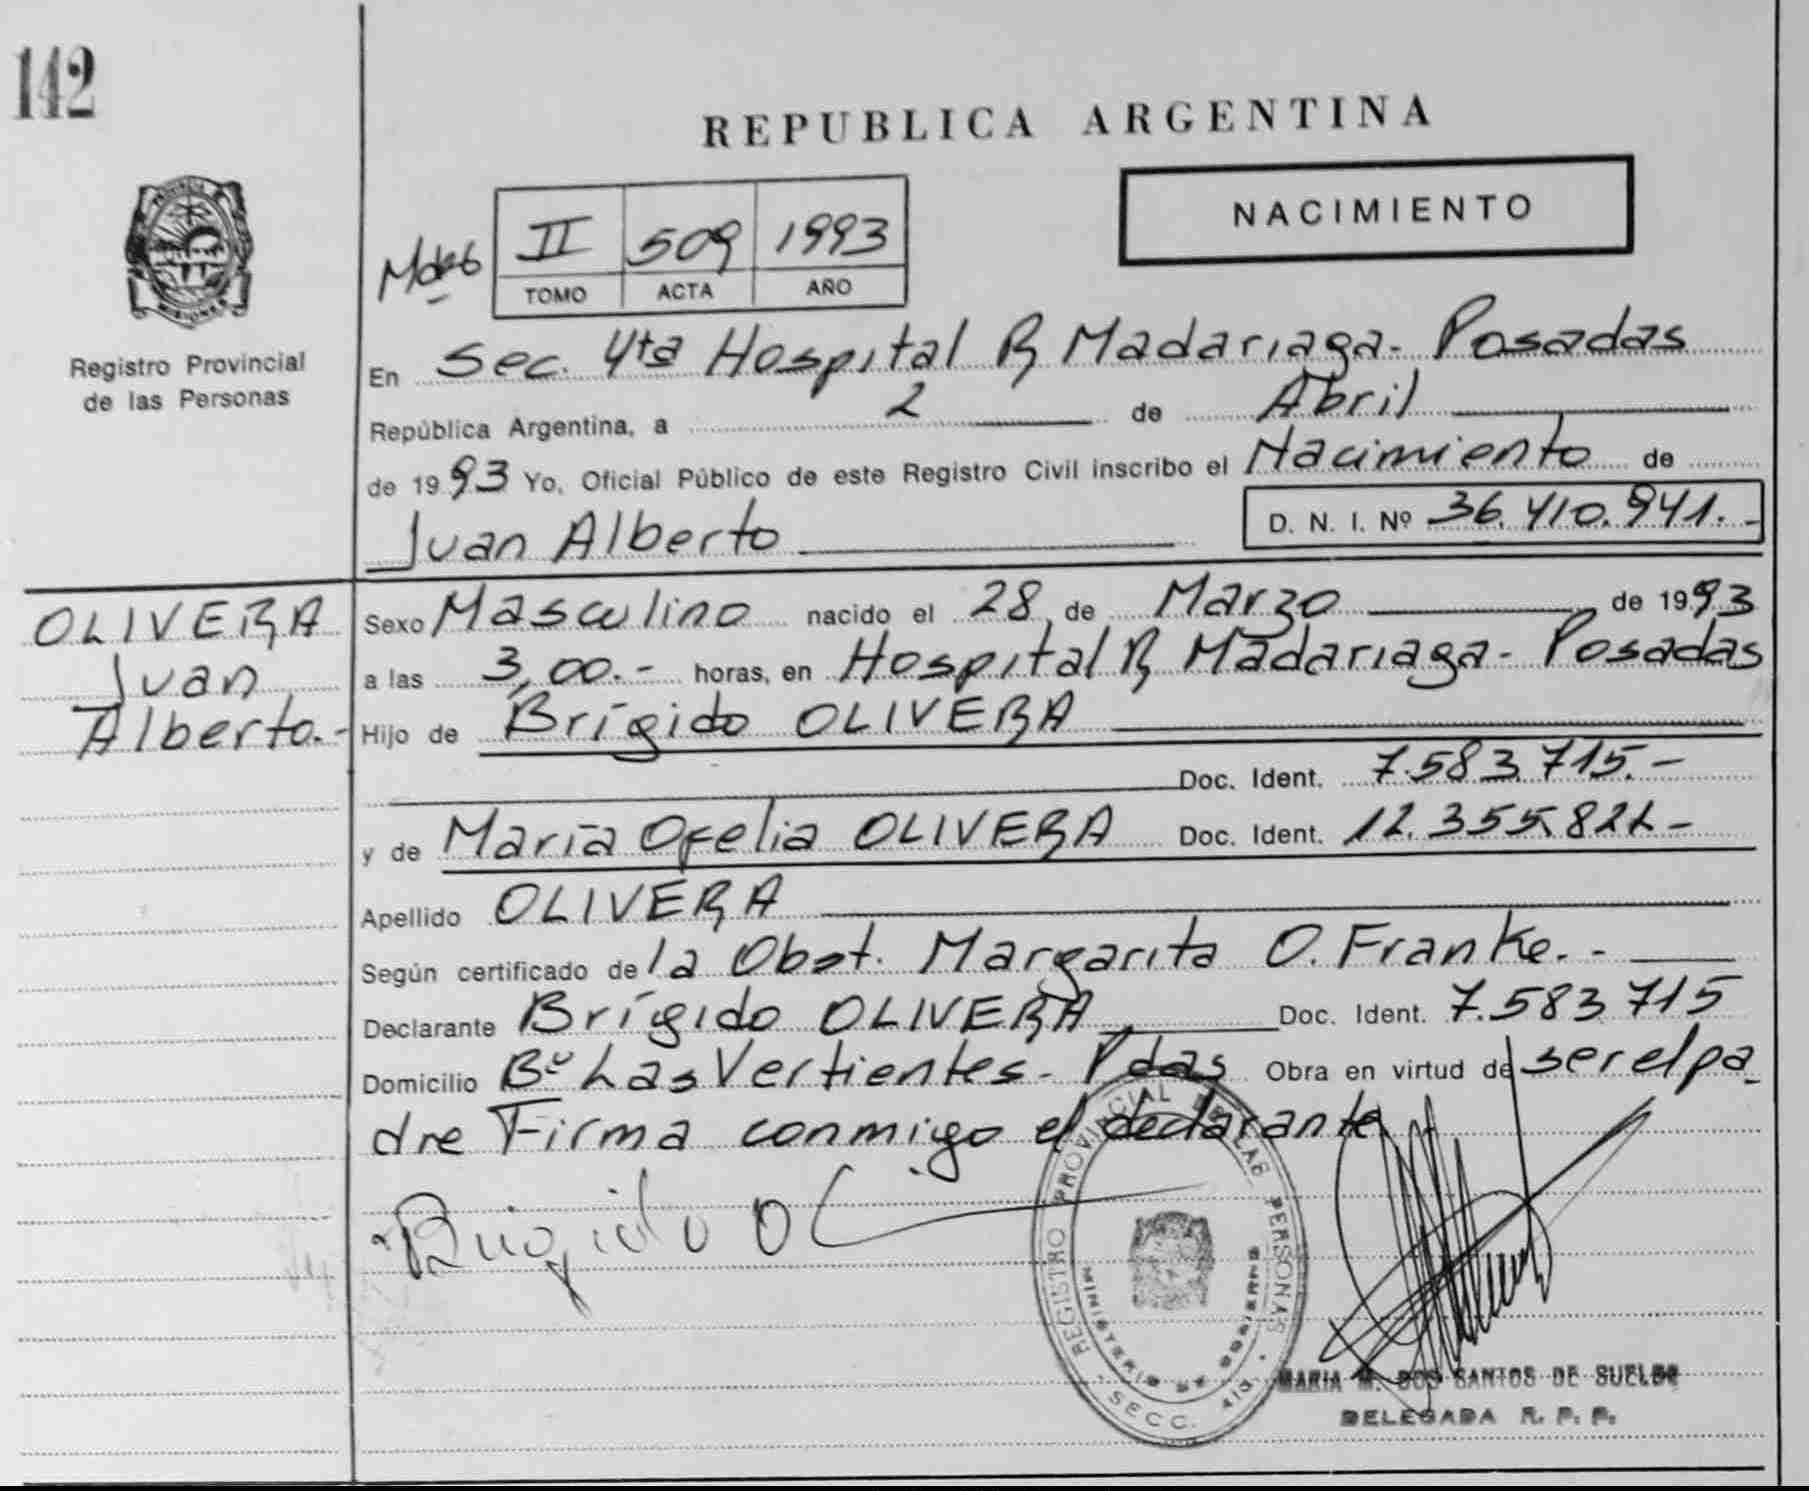 142
REPUBLICA ARGENTINA
NACIMIENTO
II 509 1993
TOMO ACTA AÑO
Registro Provincial
de las Personas
En Sec. 4ta Hospital R Madariaga - Posadas
República Argentina, a 2 de Abril
de 1993 Yo, Oficial Público de este Registro Civil inscribo el Nacimiento de
Juan Alberto
D. N. I. Nº 36.410.941.-
OLIVERA
Juan
Alberto.-
Sexo Masculino nacido el 28 de Marzo de 1993
a las 3,00.- horas, en Hospital R Madariaga - Posadas
Hijo de Brígido OLIVERA
Doc. Ident. 7.583.715.-
y de María Ofelia OLIVERA Doc. Ident.
Apellido OLIVERA
Según certificado de la Obst. Margarita O. Franke.-
Declarante Brígido OLIVERA Doc. Ident. 7.583.715
Domicilio Bº Las Vertientes - Pdas Obra en virtud de ser el pa-
dre Firma conmigo el declarante
Brigido
REGISTRO PROVINCIAL DE LAS PERSONAS
MINISTERIO DE GOBIERNO
SECC. 4ta
MARIA M. DOS SANTOS DE SUELDO
DELEGADA R. P. P.